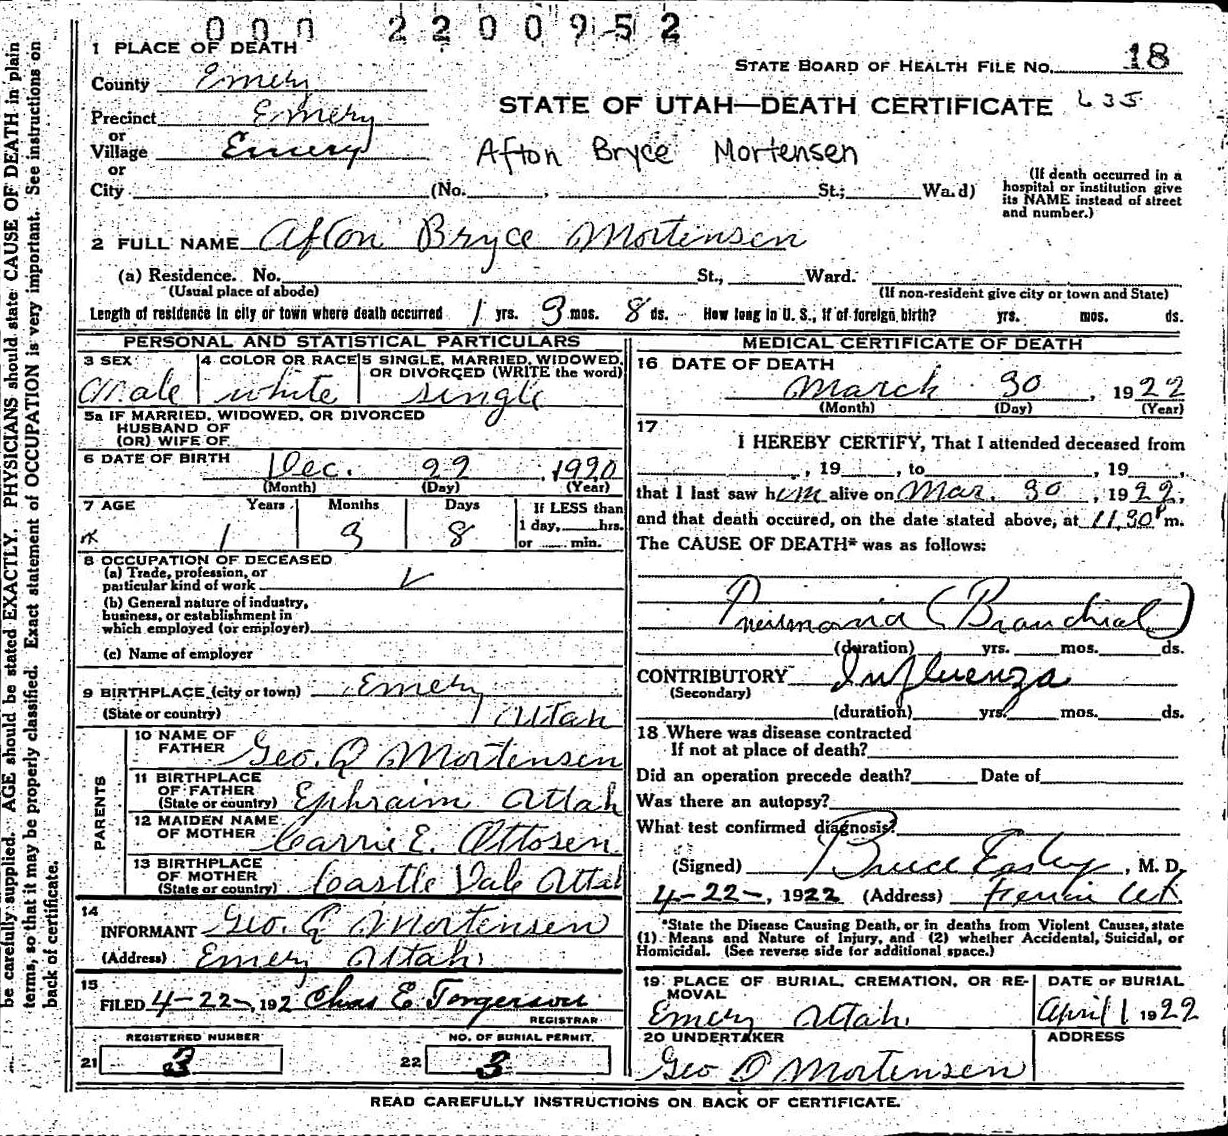 000 2200952
1 PLACE OF DEATH
STATE BOARD OF HEALTH FILE No. 18
County Emery
STATE OF UTAH—DEATH CERTIFICATE 635
Precinct Emery
or
Village Emery
Afton Bryce Mortensen
or
City (No. , St.; Wa.d)
(If death occurred in a
hospital or institution give
its NAME instead of street
and number.)
2 FULL NAME Afton Bryce Mortensen
(a) Residence. No. St., Ward.
(Usual place of abode) (If non-resident give city or town and State)
Length of residence in city or town where death occurred 1 yrs. 3 mos. 8 ds. How long in U. S., if of foreign birth? yrs. mos. ds.
PERSONAL AND STATISTICAL PARTICULARS
3 SEX 4 COLOR OR RACE 5 SINGLE, MARRIED, WIDOWED,
OR DIVORCED (WRITE the word)
Male white single
5a IF MARRIED, WIDOWED, OR DIVORCED
HUSBAND OF
(OR) WIFE OF
6 DATE OF BIRTH Dec. 22, 1920
(Month) (Day) (Year)
7 AGE Years Months Days If LESS than
1 3 8 1 day, hrs.
or min.
8 OCCUPATION OF DECEASED
(a) Trade, profession, or
particular kind of work
(b) General nature of industry,
business, or establishment in
which employed (or employer)
(c) Name of employer
9 BIRTHPLACE (city or town) Emery
(State or country) Utah
PARENTS
10 NAME OF
FATHER Geo. Q Mortensen
11 BIRTHPLACE
OF FATHER
(State or country) Ephraim Utah
12 MAIDEN NAME
OF MOTHER Carrie E. Ottosen
13 BIRTHPLACE
OF MOTHER
(State or country) Castle Dale Utah
14
INFORMANT Geo. Q Mortensen
(Address) Emery Utah
15
FILED 4-22-, 192 Chas E Torgerson
REGISTRAR
REGISTERED NUMBER NO. OF BURIAL PERMIT.
21 3 22 3
MEDICAL CERTIFICATE OF DEATH
16 DATE OF DEATH
March 30, 1922
(Month) (Day) (Year)
17
I HEREBY CERTIFY, That I attended deceased from
, 19 , to , 19 ,
that I last saw him alive on Mar. 30, 1922,
and that death occured, on the date stated above, at 11.30 P m.
The CAUSE OF DEATH* was as follows:
Pneumonia (Bronchial)
(duration) yrs. mos. ds.
CONTRIBUTORY Influenza
(Secondary)
(duration) yrs. mos. ds.
18 Where was disease contracted
If not at place of death?
Did an operation precede death? Date of
Was there an autopsy?
What test confirmed diagnosis?
(Signed) Bruce Easley, M. D.
4-22-, 1922 (Address) Ferron Ut.
*State the Disease Causing Death, or, in deaths from Violent Causes, state
(1) Means and Nature of Injury, and (2) whether Accidental, Suicidal, or
Homicidal. (See reverse side for additional space.)
19 PLACE OF BURIAL, CREMATION, OR RE-
MOVAL
Emery Utah.
DATE OF BURIAL
April 1 1922
20 UNDERTAKER ADDRESS
Geo Q Mortensen
READ CAREFULLY INSTRUCTIONS ON BACK OF CERTIFICATE.
be carefully supplied. AGE should be stated EXACTLY. PHYSICIANS should state CAUSE OF DEATH in plain
terms, so that it may be properly classified. Exact statement of OCCUPATION is very important. See instructions on
back of certificate.